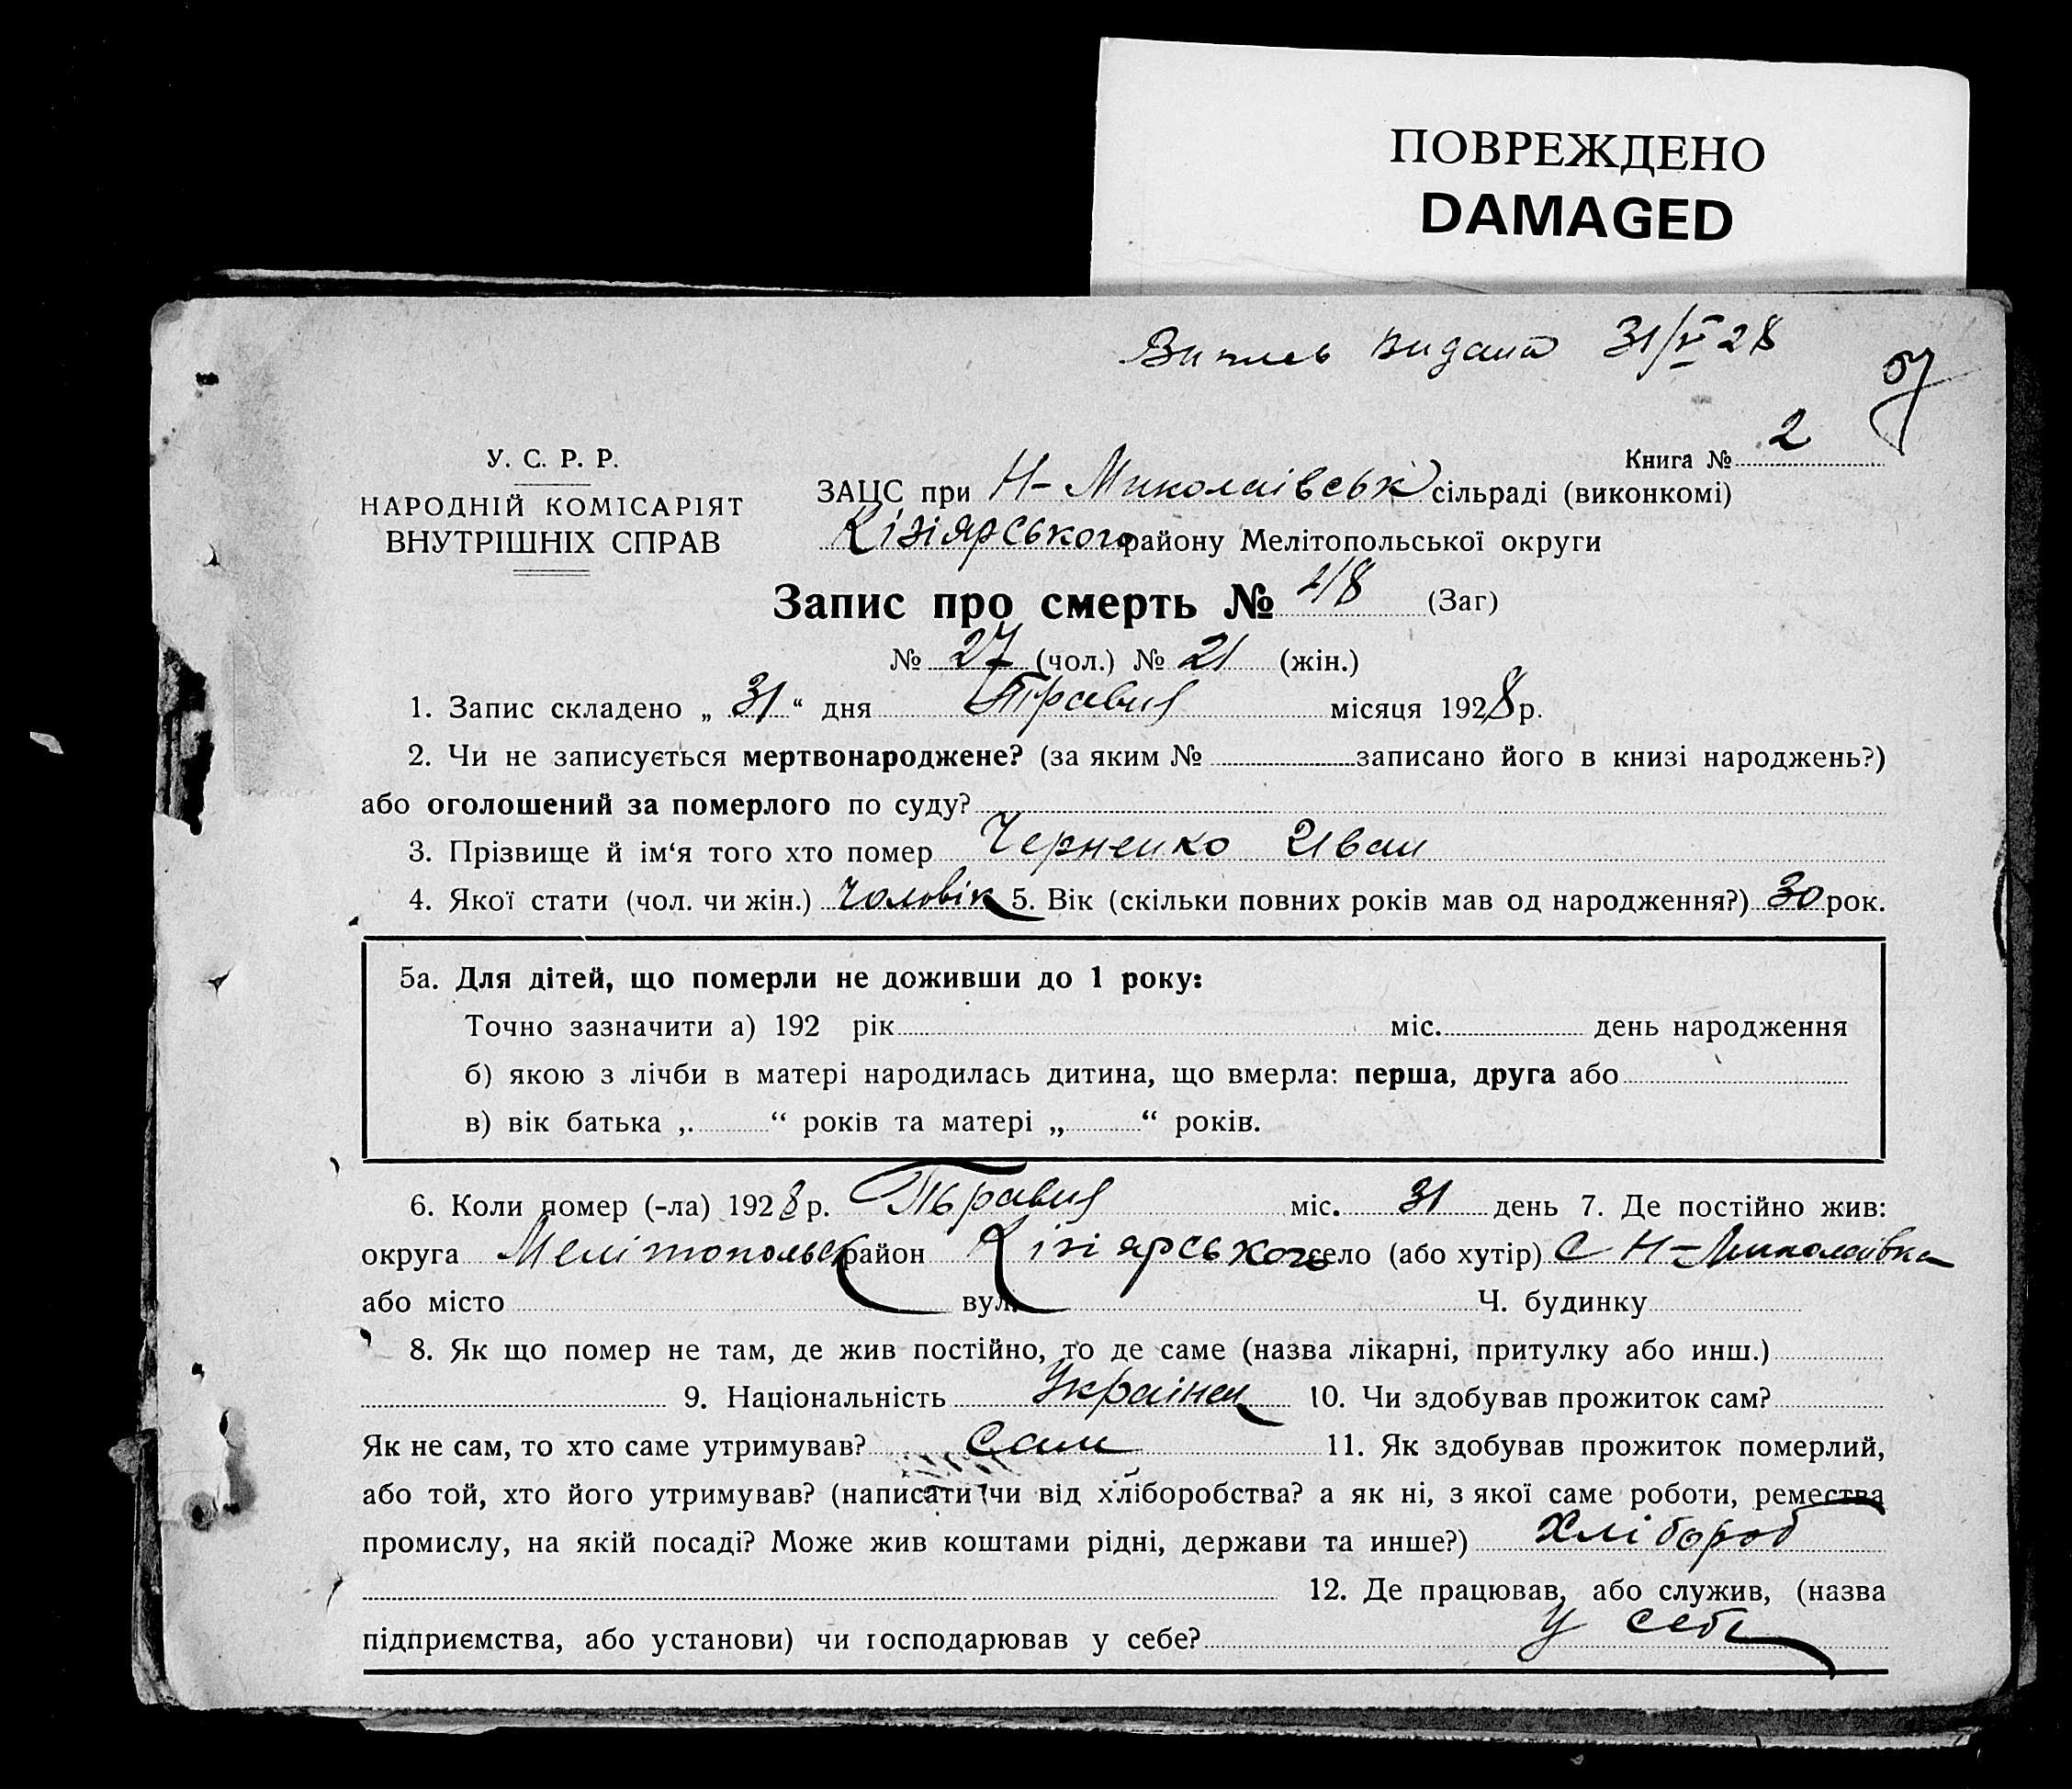 ПОВРЕЖДЕНО
DAMAGED
Випись видана 31/V 28
Книга № 2
У. С. Р. Р.
НАРОДНІЙ КОМІСАРІЯТ
ВНУТРІШНІХ СПРАВ
ЗАЦС при Н-Миколаівськ сільраді (виконкомі)
Кізіярського району Мелітопольської округи
Запис про смерть № 48 (Заг)
№ 27 (чол.) № 21 (жін.)
1. Запис складено „ 31 “ дня Травня місяця 1928 р.
2. Чи не записується мертвонароджене? (за яким № записано його в книзі народжень?)
або оголошений за померлого по суду?
3. Прізвище й ім‘я того хто помер Черненко Иван
4. Якої стати (чол. чи жін.) Чоловік 5. Вік (скільки повних років мав од народження?) 30 рок.
5а. Для дітей, що померли не доживши до 1 року:
Точно зазначити а) 192 рік міс. день народження
б) якою з лічби в матері народилась дитина, що вмерла: перша, друга або
в) вік батька „ “ років та матері „ “ років.
6. Коли помер (-ла) 1928 р. Травня міс. 31 день 7. Де постійно жив:
округа Мелітопольськ район Кізіярського село (або хутір) с Н-Миколаівка
або місто вул. Ч. будинку
8. Як що помер не там, де жив постійно, то де саме (назва лікарні, притулку або инш.)
9. Національність Украінец 10. Чи здобував прожиток сам?
Як не сам, то хто саме утримував? Сам 11. Як здобував прожиток померлий,
або той, хто його утримував? (написати чи від хліборобства? а як ні, з якої саме роботи, ремества
промислу, на якій посаді? Може жив коштами рідні, держави та инше?) Хлібороб
12. Де працював, або служив, (назва
підприємства, або установи) чи господарював у себе? у себе